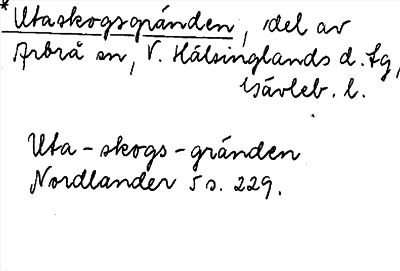 *Utaskogsgränden, del av
Arbrå sn, V. Hälsinglands d. lg,
Gävleb. l.
Uta-skogs-gränden
Nordlander 5 s. 229.